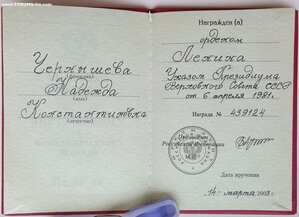 WWW.FORUMS-SU.COM
Чернышева
(фамилия)
Надежда
(имя)
Константиновна
(отчество)
Награжден (а)
орденом
Ленина
Указом Президиума
Верховного Совета СССР
от 6 апреля 1981г.
Награда № 439124
Президент
Российской Федерации
Дата вручения
14 марта 2003 г.